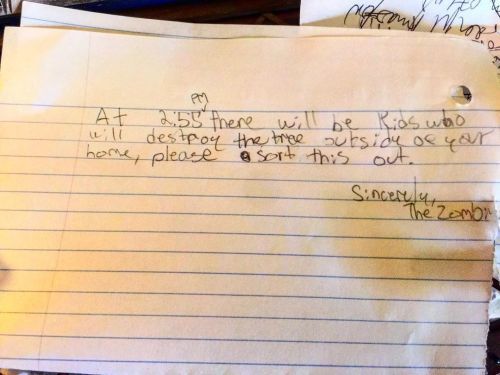 At 2:55 PM there will be Kids who
will destroy the tree outside of your
home, please sort this out.
Sincerely,
The Zombi